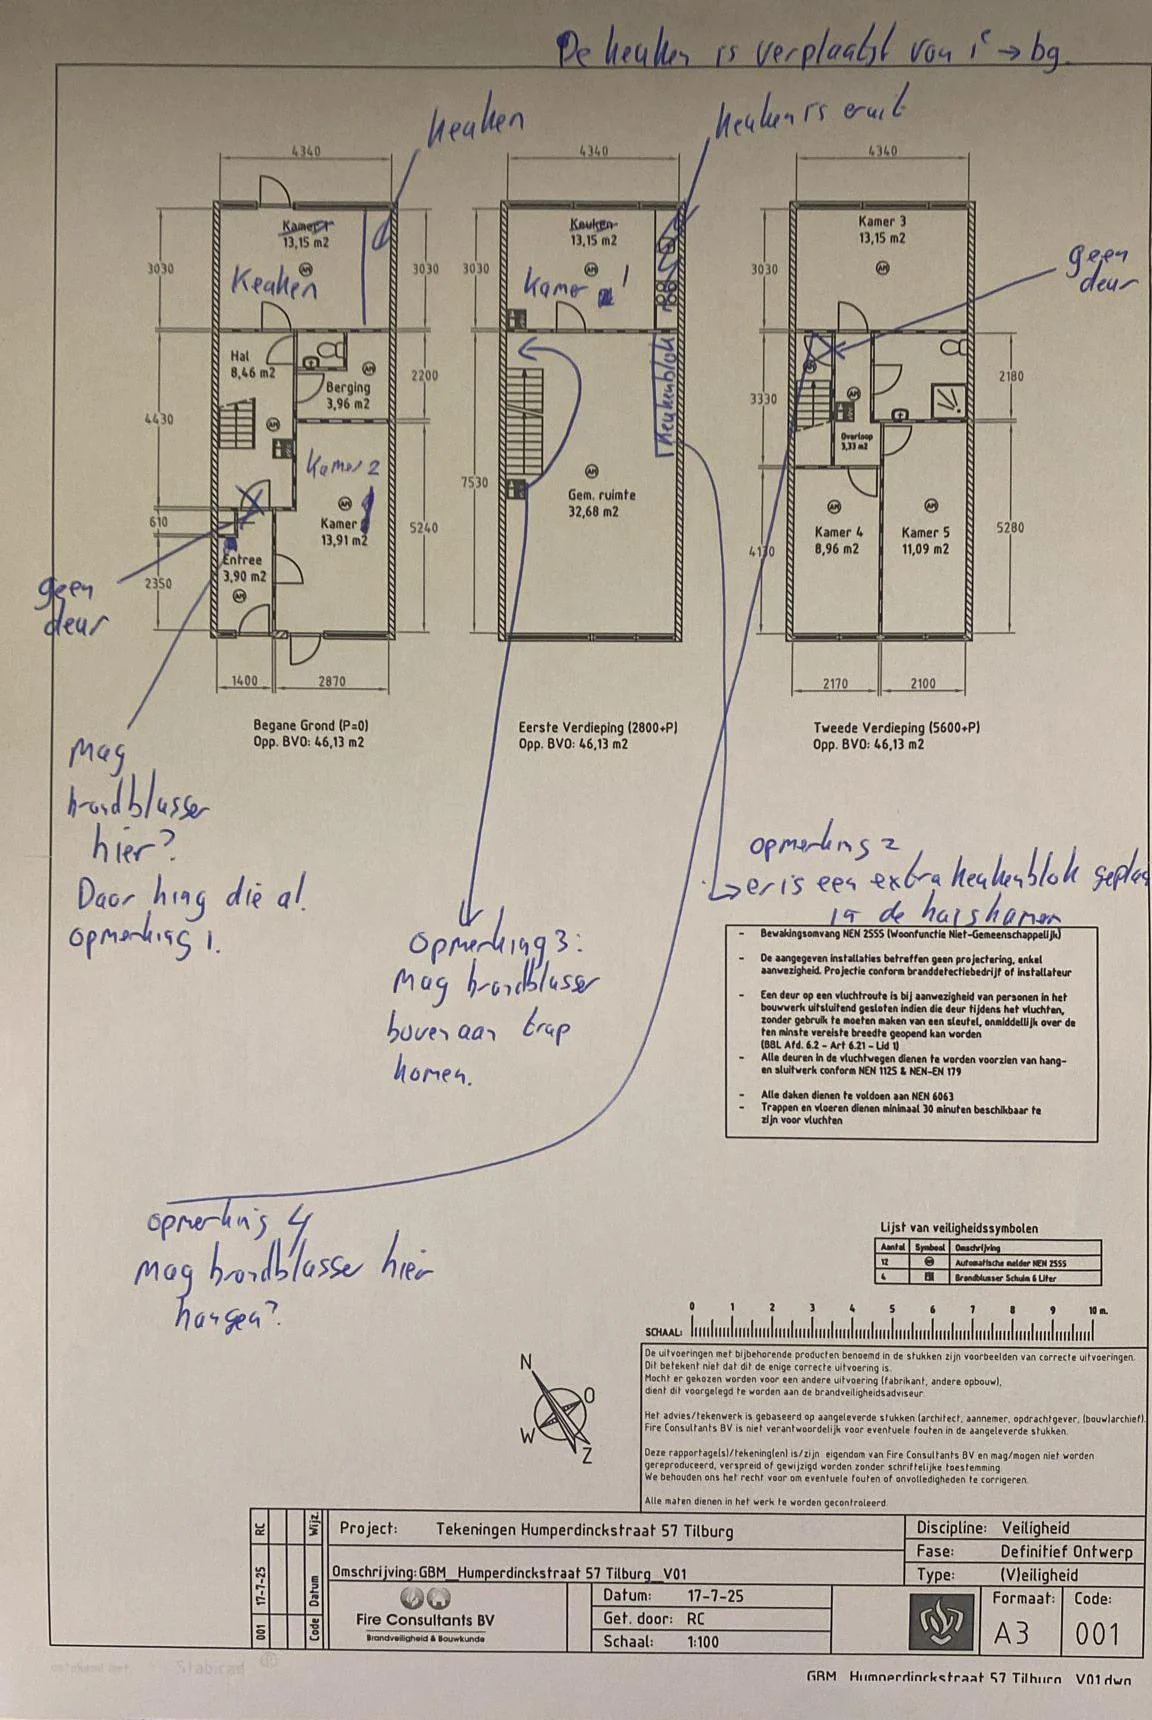 De keuken is verplaatst van 1e → bg.
keuken
keuken is eruit
4340
4340
4340
Kamer 1
13,15 m2
Keuken
Keuken
13,15 m2
Kamer 1
Kamer 3
13,15 m2
geen
deur
3030
3030
3030
3030
Hal
8,46 m2
Berging
3,96 m2
2200
4430
Kamer 2
Kamer
13,91 m2
610
5240
Entree
3,90 m2
2350
geen
deur
1400
2870
keukenblok
7530
Gem. ruimte
32,68 m2
3330
2180
Overloop
3,33 m2
Kamer 4
8,96 m2
Kamer 5
11,09 m2
5280
4130
2170
2100
Begane Grond (P=0)
Opp. BVO: 46,13 m2
Eerste Verdieping (2800+P)
Opp. BVO: 46,13 m2
Tweede Verdieping (5600+P)
Opp. BVO: 46,13 m2
Mag
brandblusser
hier?
Daar hing die al.
opmerking 1.
opmerking 3:
Mag brandblusser
boven aan trap
komen.
opmerking 2
er is een extra keukenblok geplaa
in de huiskamer
- Bewakingsomvang NEN 2555 (Woonfunctie Niet-Gemeenschappelijk)
- De aangegeven installaties betreffen geen projectering, enkel
aanwezigheid. Projectie conform branddetectiebedrijf of installateur
- Een deur op een vluchtroute is bij aanwezigheid van personen in het
bouwwerk uitsluitend gesloten indien die deur tijdens het vluchten,
zonder gebruik te moeten maken van een sleutel, onmiddellijk over de
ten minste vereiste breedte geopend kan worden
(BBL Afd. 6.2 - Art 6.21 - Lid 1)
- Alle deuren in de vluchtwegen dienen te worden voorzien van hang-
en sluitwerk conform NEN 1125 & NEN-EN 179
- Alle daken dienen te voldoen aan NEN 6063
- Trappen en vloeren dienen minimaal 30 minuten beschikbaar te
zijn voor vluchten
opmerking 4
Mag brandblusser hier
hangen?
Lijst van veiligheidssymbolen
Aantal Symbool Omschrijving
12 Automatische melder NEN 2555
4 Brandblusser Schuim 6 Liter
0 1 2 3 4 5 6 7 8 9 10 m.
SCHAAL:
N
O
W
Z
De uitvoeringen met bijbehorende producten benoemd in de stukken zijn voorbeelden van correcte uitvoeringen.
Dit betekent niet dat dit de enige correcte uitvoering is.
Mocht er gekozen worden voor een andere uitvoering (fabrikant, andere opbouw),
dient dit voorgelegd te worden aan de brandveiligheidsadviseur.
Het advies/tekenwerk is gebaseerd op aangeleverde stukken (architect, aannemer, opdrachtgever, (bouw)archief).
Fire Consultants BV is niet verantwoordelijk voor eventuele fouten in de aangeleverde stukken.
Deze rapportage(s)/tekening(en) is/zijn eigendom van Fire Consultants BV en mag/mogen niet worden
gereproduceerd, verspreid of gewijzigd worden zonder schriftelijke toestemming.
We behouden ons het recht voor om eventuele fouten of onvolledigheden te corrigeren.
Alle maten dienen in het werk te worden gecontroleerd.
001 17-7-25 RC
Code Datum Wijz.
Project: Tekeningen Humperdinckstraat 57 Tilburg
Omschrijving: GBM_Humperdinckstraat 57 Tilburg_V01
Fire Consultants BV
Brandveiligheid & Bouwkunde
Datum: 17-7-25
Get. door: RC
Schaal: 1:100
Discipline: Veiligheid
Fase: Definitief Ontwerp
Type: (V)eiligheid
Formaat: A3
Code: 001
GBM_Humperdinckstraat 57 Tilburg_V01.dwg